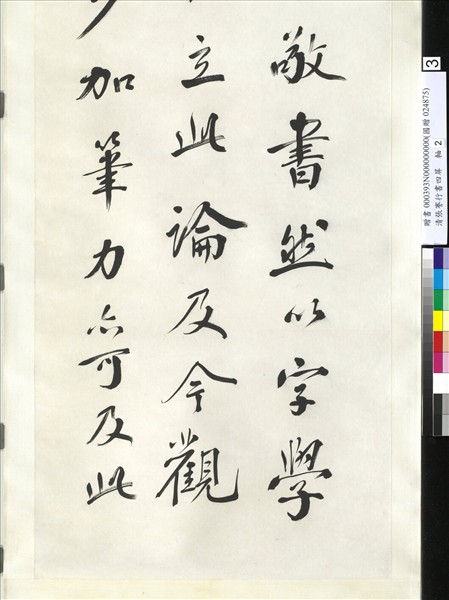 敬書然以字學
立此論及今觀
加筆力亦可及此
贈書 000393N000000000(國贈 024875)
清張騫行書四屏 軸 2
3